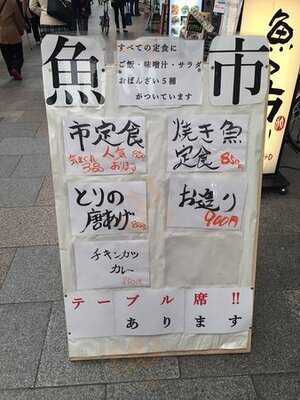 魚 市
すべての定食に
ご飯・味噌汁・サラダ
おばんざい5種
がついています
市定食
人気
焼き魚
定食 850円
とりの
唐あげ
お造り
900円
チキンカツ
カレー
テーブル席!!
あります